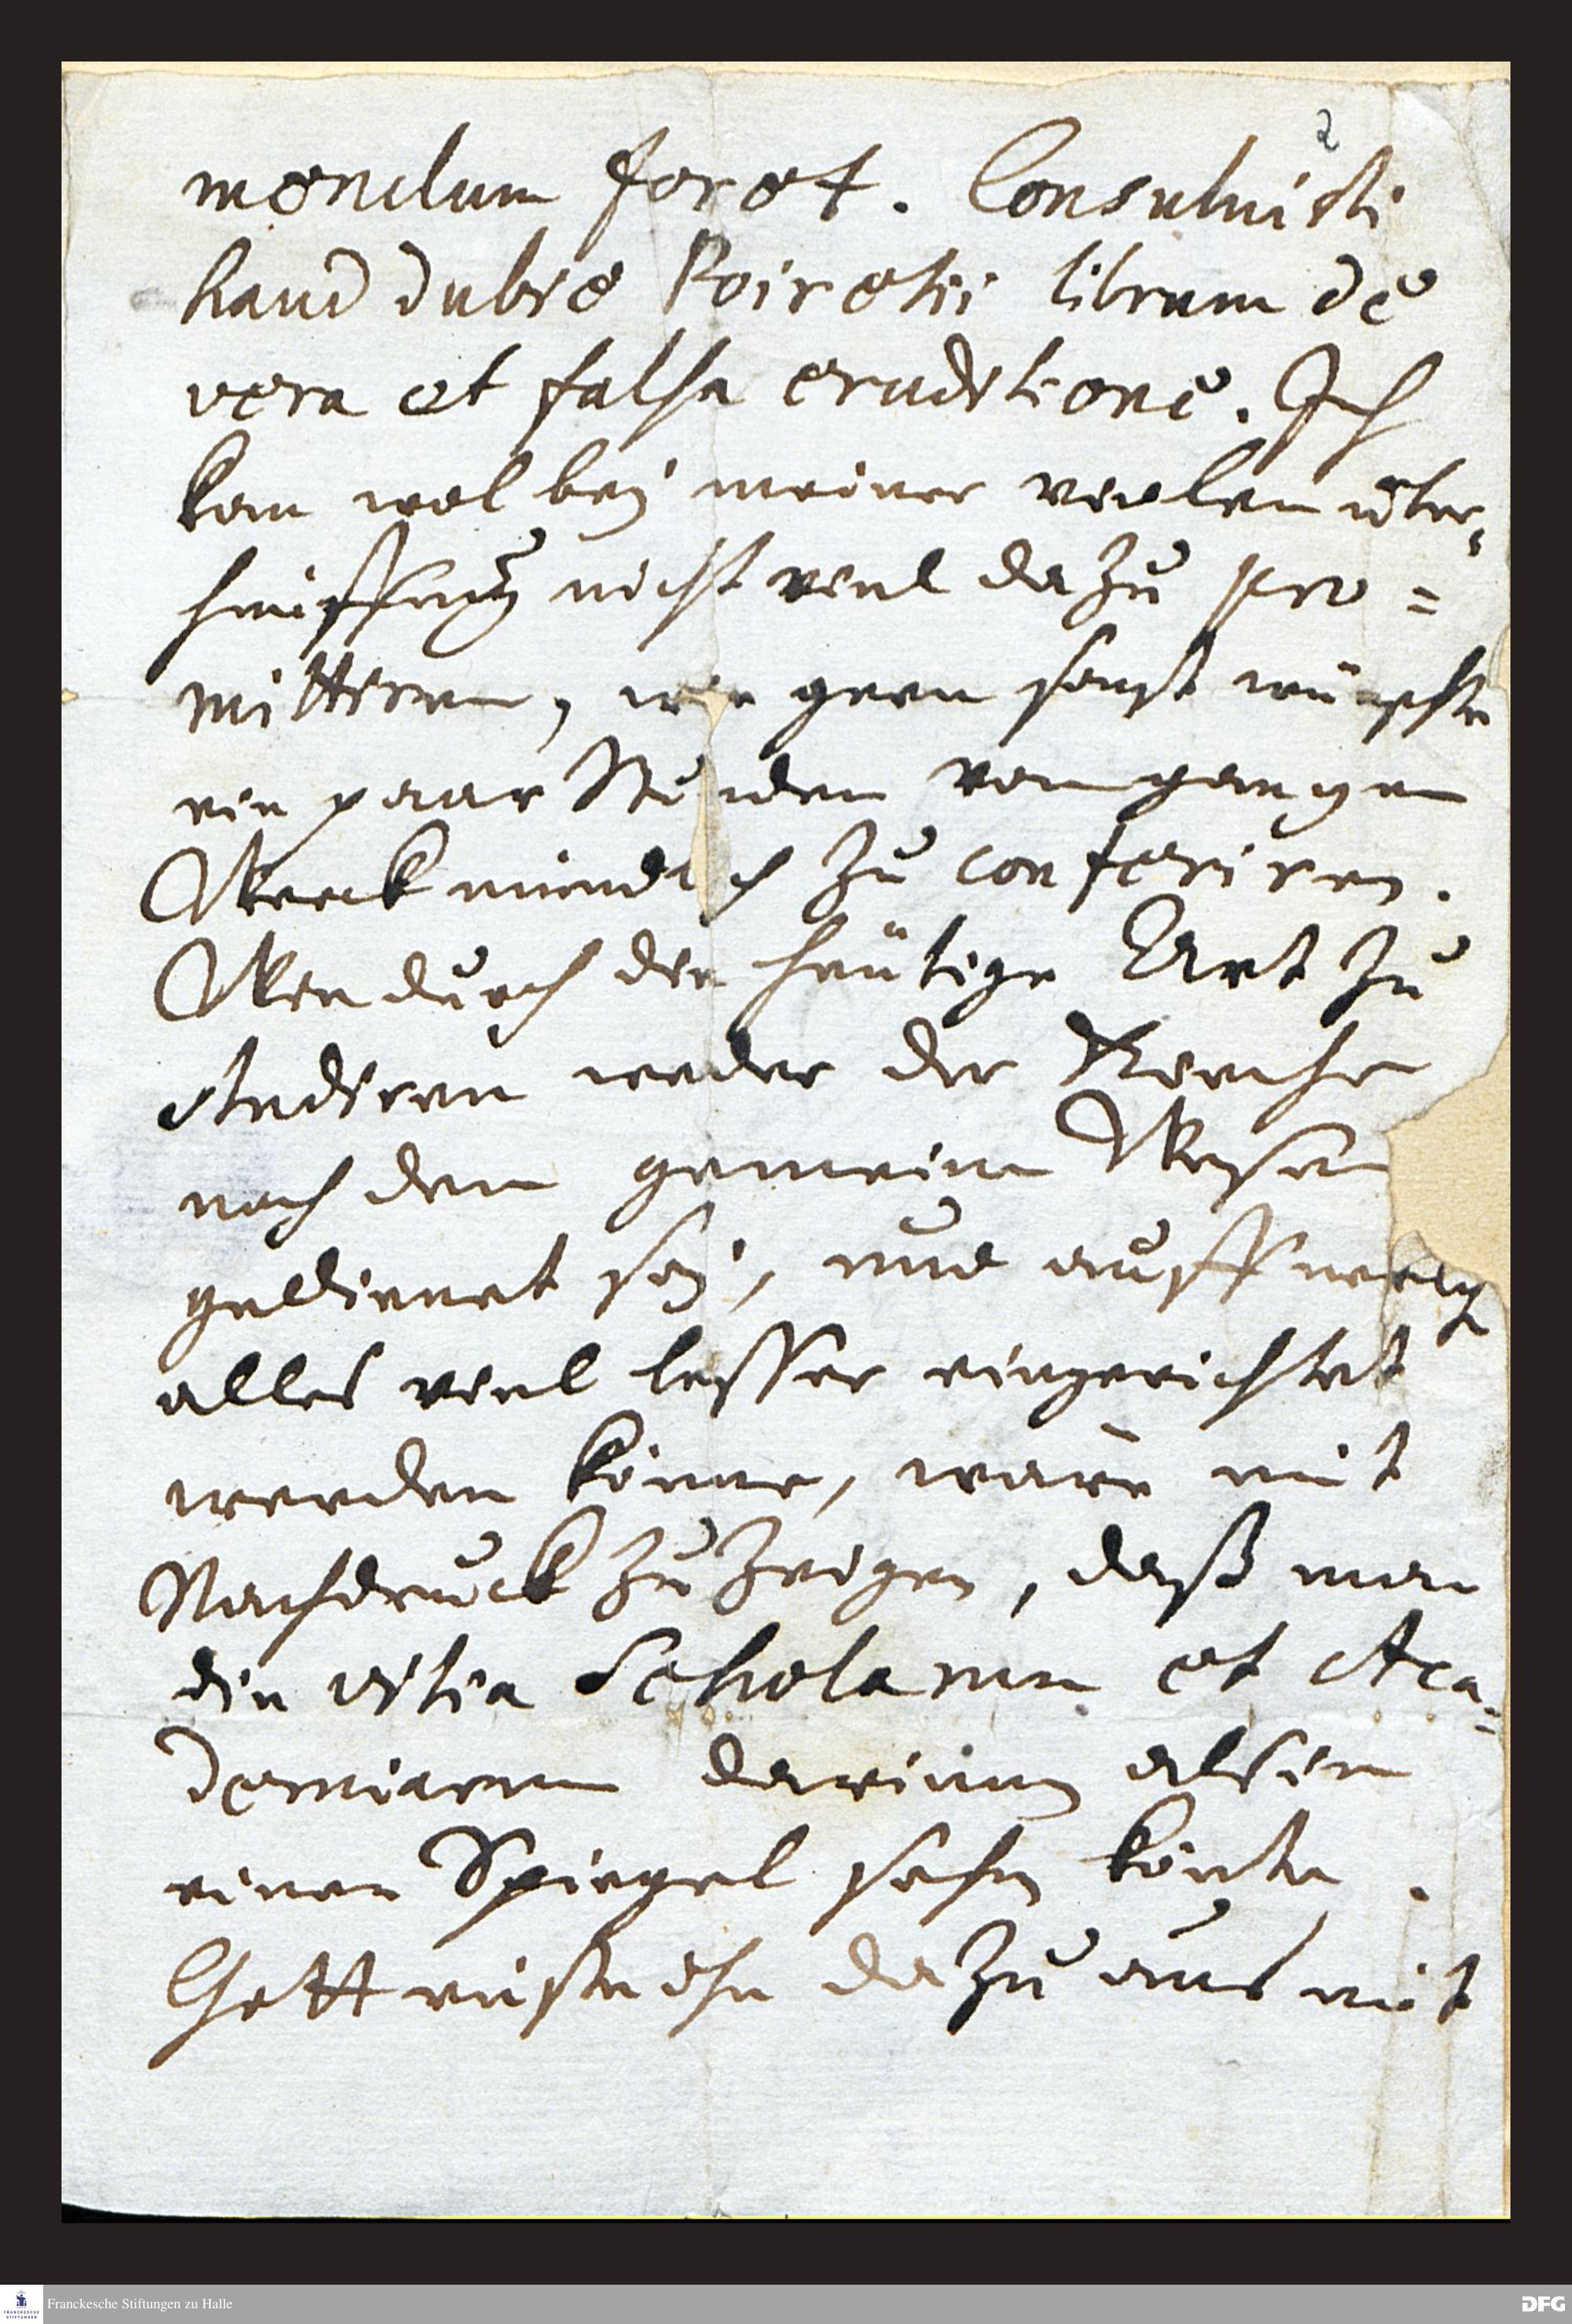 2
mendum foret. Consuluisti
haud dubie Poiretii librum de
vera et falsa eruditione. Ich
kan wol bey meiner vielen über-
häuffung nicht viel dazu pro=
mittiren, wie gern sonst wünschte
ein paar Stunden vom gantzen
Werck mündlich zu conferiren.
Wie durch die heütige Art zu
studiren weder der Kirche
noch dem gemeinen Wesen
gedienet sey, und auff was
alles viel besser eingerichtet
werden könne, wäre mit
Nachdruck zu zeigen, daß man
die vitia Scholarum et Aca=
demiarum darinnen als in
einen Spiegel sehen könte.
Gott rüste ihn dazu aus mit
Franckesche Stiftungen zu Halle
FRANCKESCHE
STIFTUNGEN
DFG